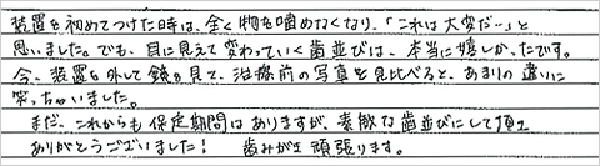 装置を初めてつけた時は、全く物を噛めなくなり、「これは大変だ…」と
思いました。でも、目に見えて変わっていく歯並びは、本当に嬉しかったです。
今、装置を外して鏡を見て、治療前の写真を見比べると、あまりの違いに
笑っちゃいました。
まだ、これからも保定期間はありますが、素敵な歯並びにして頂き
ありがとうございました! 歯みがき頑張ります。